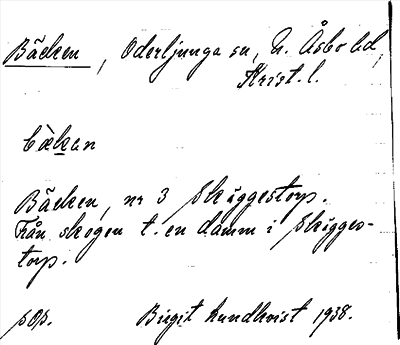 Bäcken, Oderljunga sn, N. Åsbo hd,
Krist. l.
bàkan
Bäcken, nr 3 Skäggestorp.
Från skogen t. en damm i Skägges-
torp.
Birgit Lundkvist 1938.